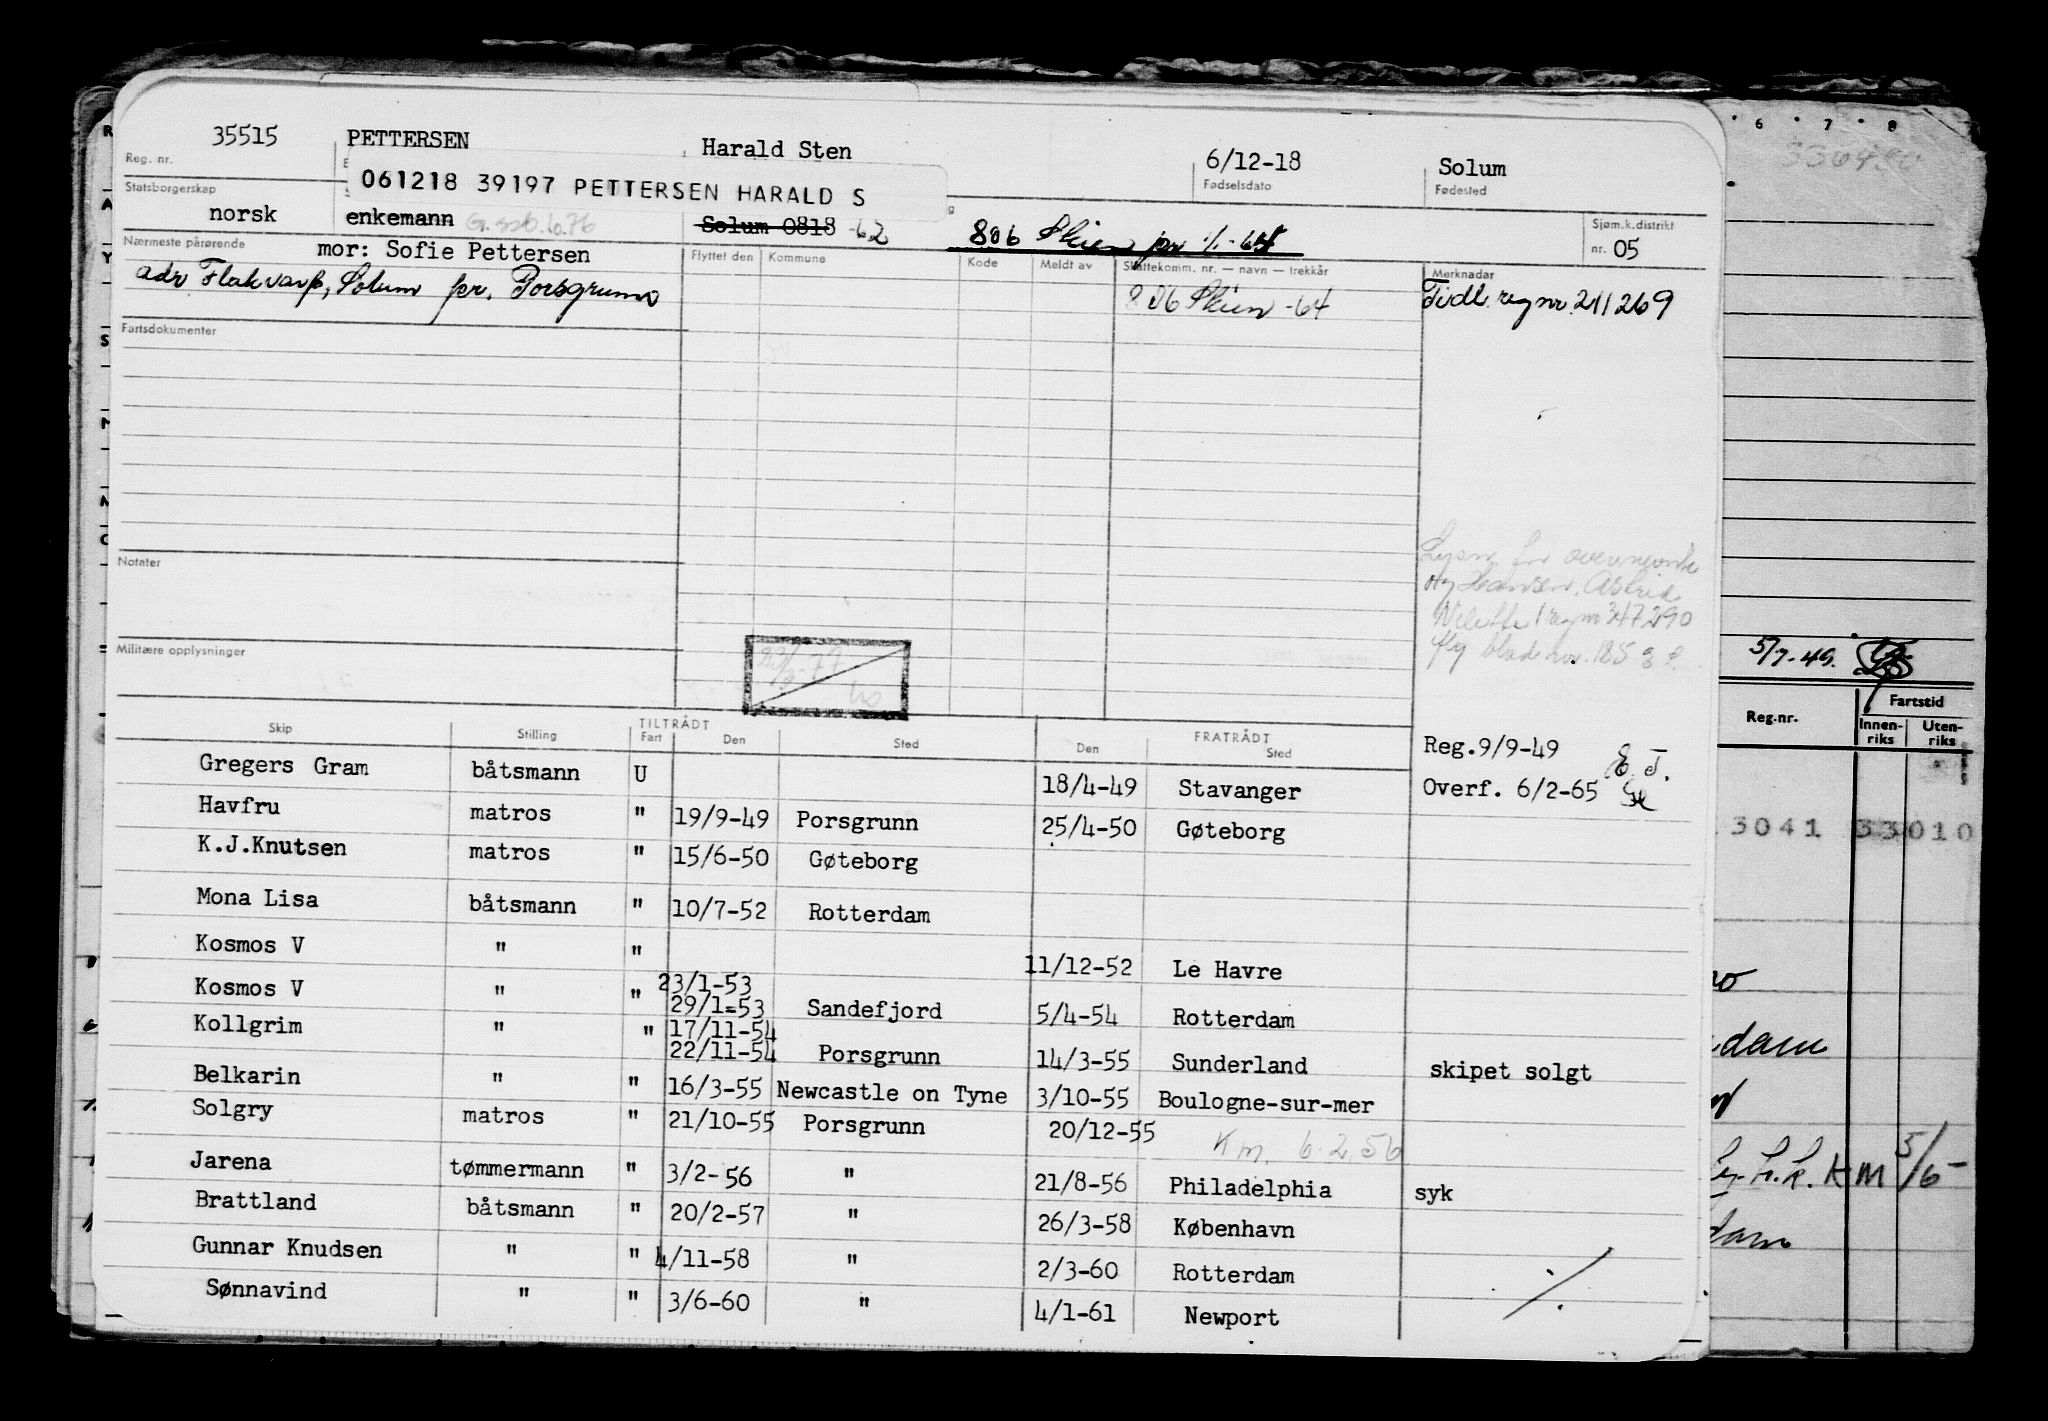 35515 PETTERSEN Harald Sten 6/12-18 Solum
Reg. nr. Fødselsdato Fødested
061218 39197 PETTERSEN HARALD S
Statsborgerskap
norsk enkemann G.ssb.10.76 Solum 0818 -62 806 Skien pr 1/1-64 Sjøm.k.distrikt
nr. 05
Nærmeste pårørende mor: Sofie Pettersen
adr Flakvarp, Solum pr. Porsgrunn
Flyttet den Kommune Kode Meldt av Skattekomm. nr. — navn — trekkår Merknader
806 Skien -64 Tidl. regnr. 211269
Fartsdokumenter
Notater
Lysn for
Hansen, Astrid
regnr 347290
blad nr. 185
Militære opplysninger
23/3-77
5/7-49.
Skip Stilling TILTRÅDT FRATRÅDT
Fart Den Sted Den Sted
Reg.9/9-49 E.T.
Overf. 6/2-65
Gregers Gram båtsmann U 18/4-49 Stavanger
Havfru matros " 19/9-49 Porsgrunn 25/4-50 Gøteborg
K.J.Knutsen matros " 15/6-50 Gøteborg
Mona Lisa båtsmann " 10/7-52 Rotterdam
Kosmos V " " 11/12-52 Le Havre
23/1-53
Kosmos V " " 29/1-53 Sandefjord 5/4-54 Rotterdam
17/11-54
Kollgrim " " 22/11-54 Porsgrunn 14/3-55 Sunderland skipet solgt
Belkarin " " 16/3-55 Newcastle on Tyne 3/10-55 Boulogne-sur-mer
Solgry matros " 21/10-55 Porsgrunn 20/12-55
Km. 6.2.56
Jarena tømmermann " 3/2-56 " 21/8-56 Philadelphia syk
Brattland båtsmann " 20/2-57 " 26/3-58 København
Gunnar Knudsen " " 4/11-58 " 2/3-60 Rotterdam
Sønnavind " " 3/6-60 " 4/1-61 Newport
6 7 8
Reg.nr. Fartstid
Innen-
riks
Uten-
riks
3041 33010
dam
KM 5/6
dam